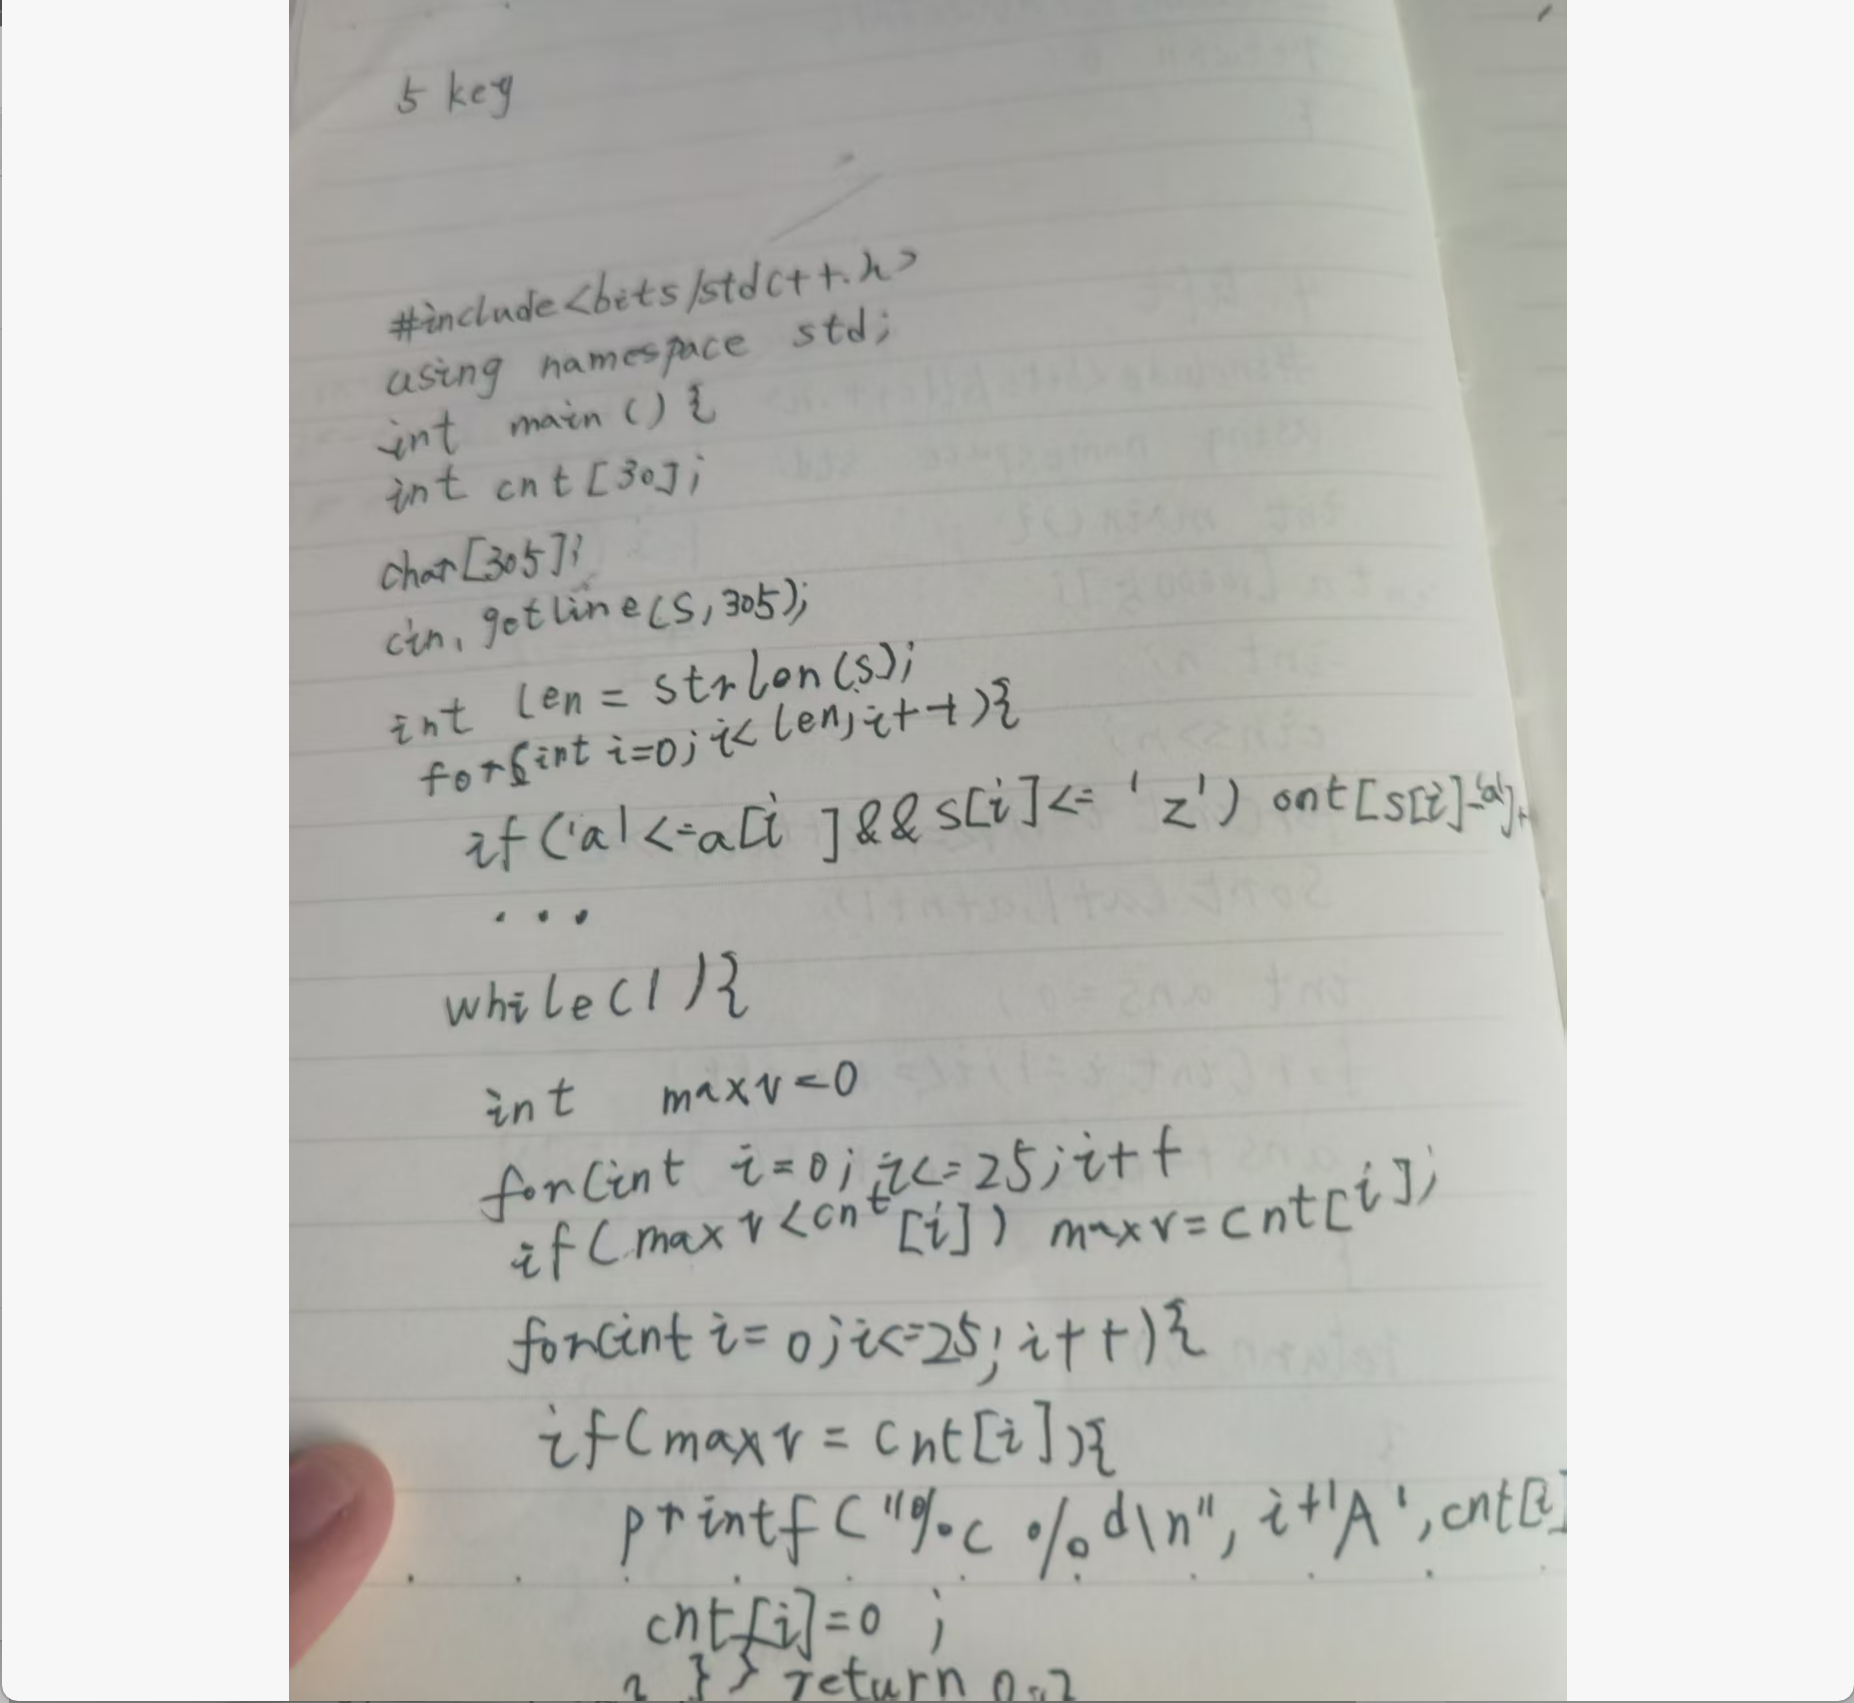 5 key
#include<bits/stdc++.h>
using namespace std;
int main(){
int cnt[30];
char[305];
cin. getline(s,305);
int len = strlen(s);
for(int i=0;i<len;i++){
if('a'<=a[i ]&&s[i]<= 'z') cnt[s[i]-'a']+
...
while(1){
int maxv=0
for(int i=0;i<=25;i++
if(maxv<cnt[i]) maxv=cnt[i];
for(int i=0;i<=25;i++){
if(maxv=cnt[i]){
printf("%c %d\n",i+'A',cnt[i]
cnt[i]=0 ;
} } return 0